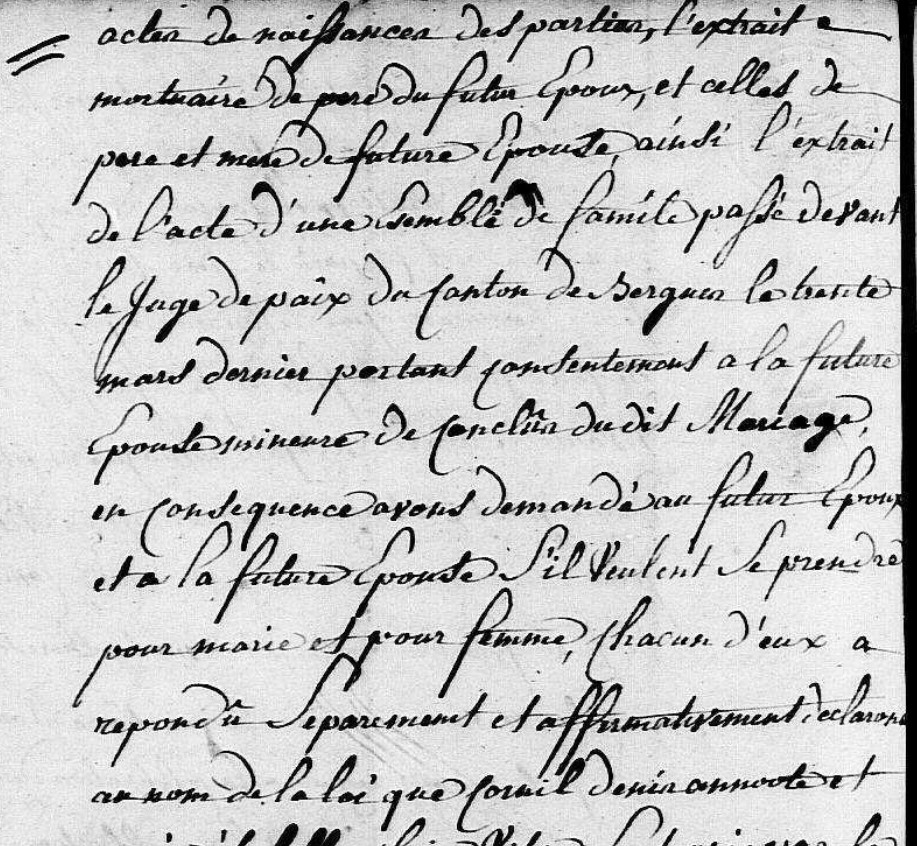 actes de naissances des parties, l'extrait
mortuaire de pere du futur Epoux, et celles de
pere et mere de future Epouse, ainsi l'extrait
de l'acte d'une Esemblé de famile passé devant
le Juge de paix du Canton de Bergues le trente
mars dernier portant consentement a la future
Epouse mineure de Conclûr du dit Mariage,
en Consequence avons demandé au futur Epoux
et a la future Epouse S'il Veulent Se prendre
pour marie et pour femme, Chacun d'eux a
repondû Separement et affirmativement declarons
au nom de la loi que Cornil denis annoote et